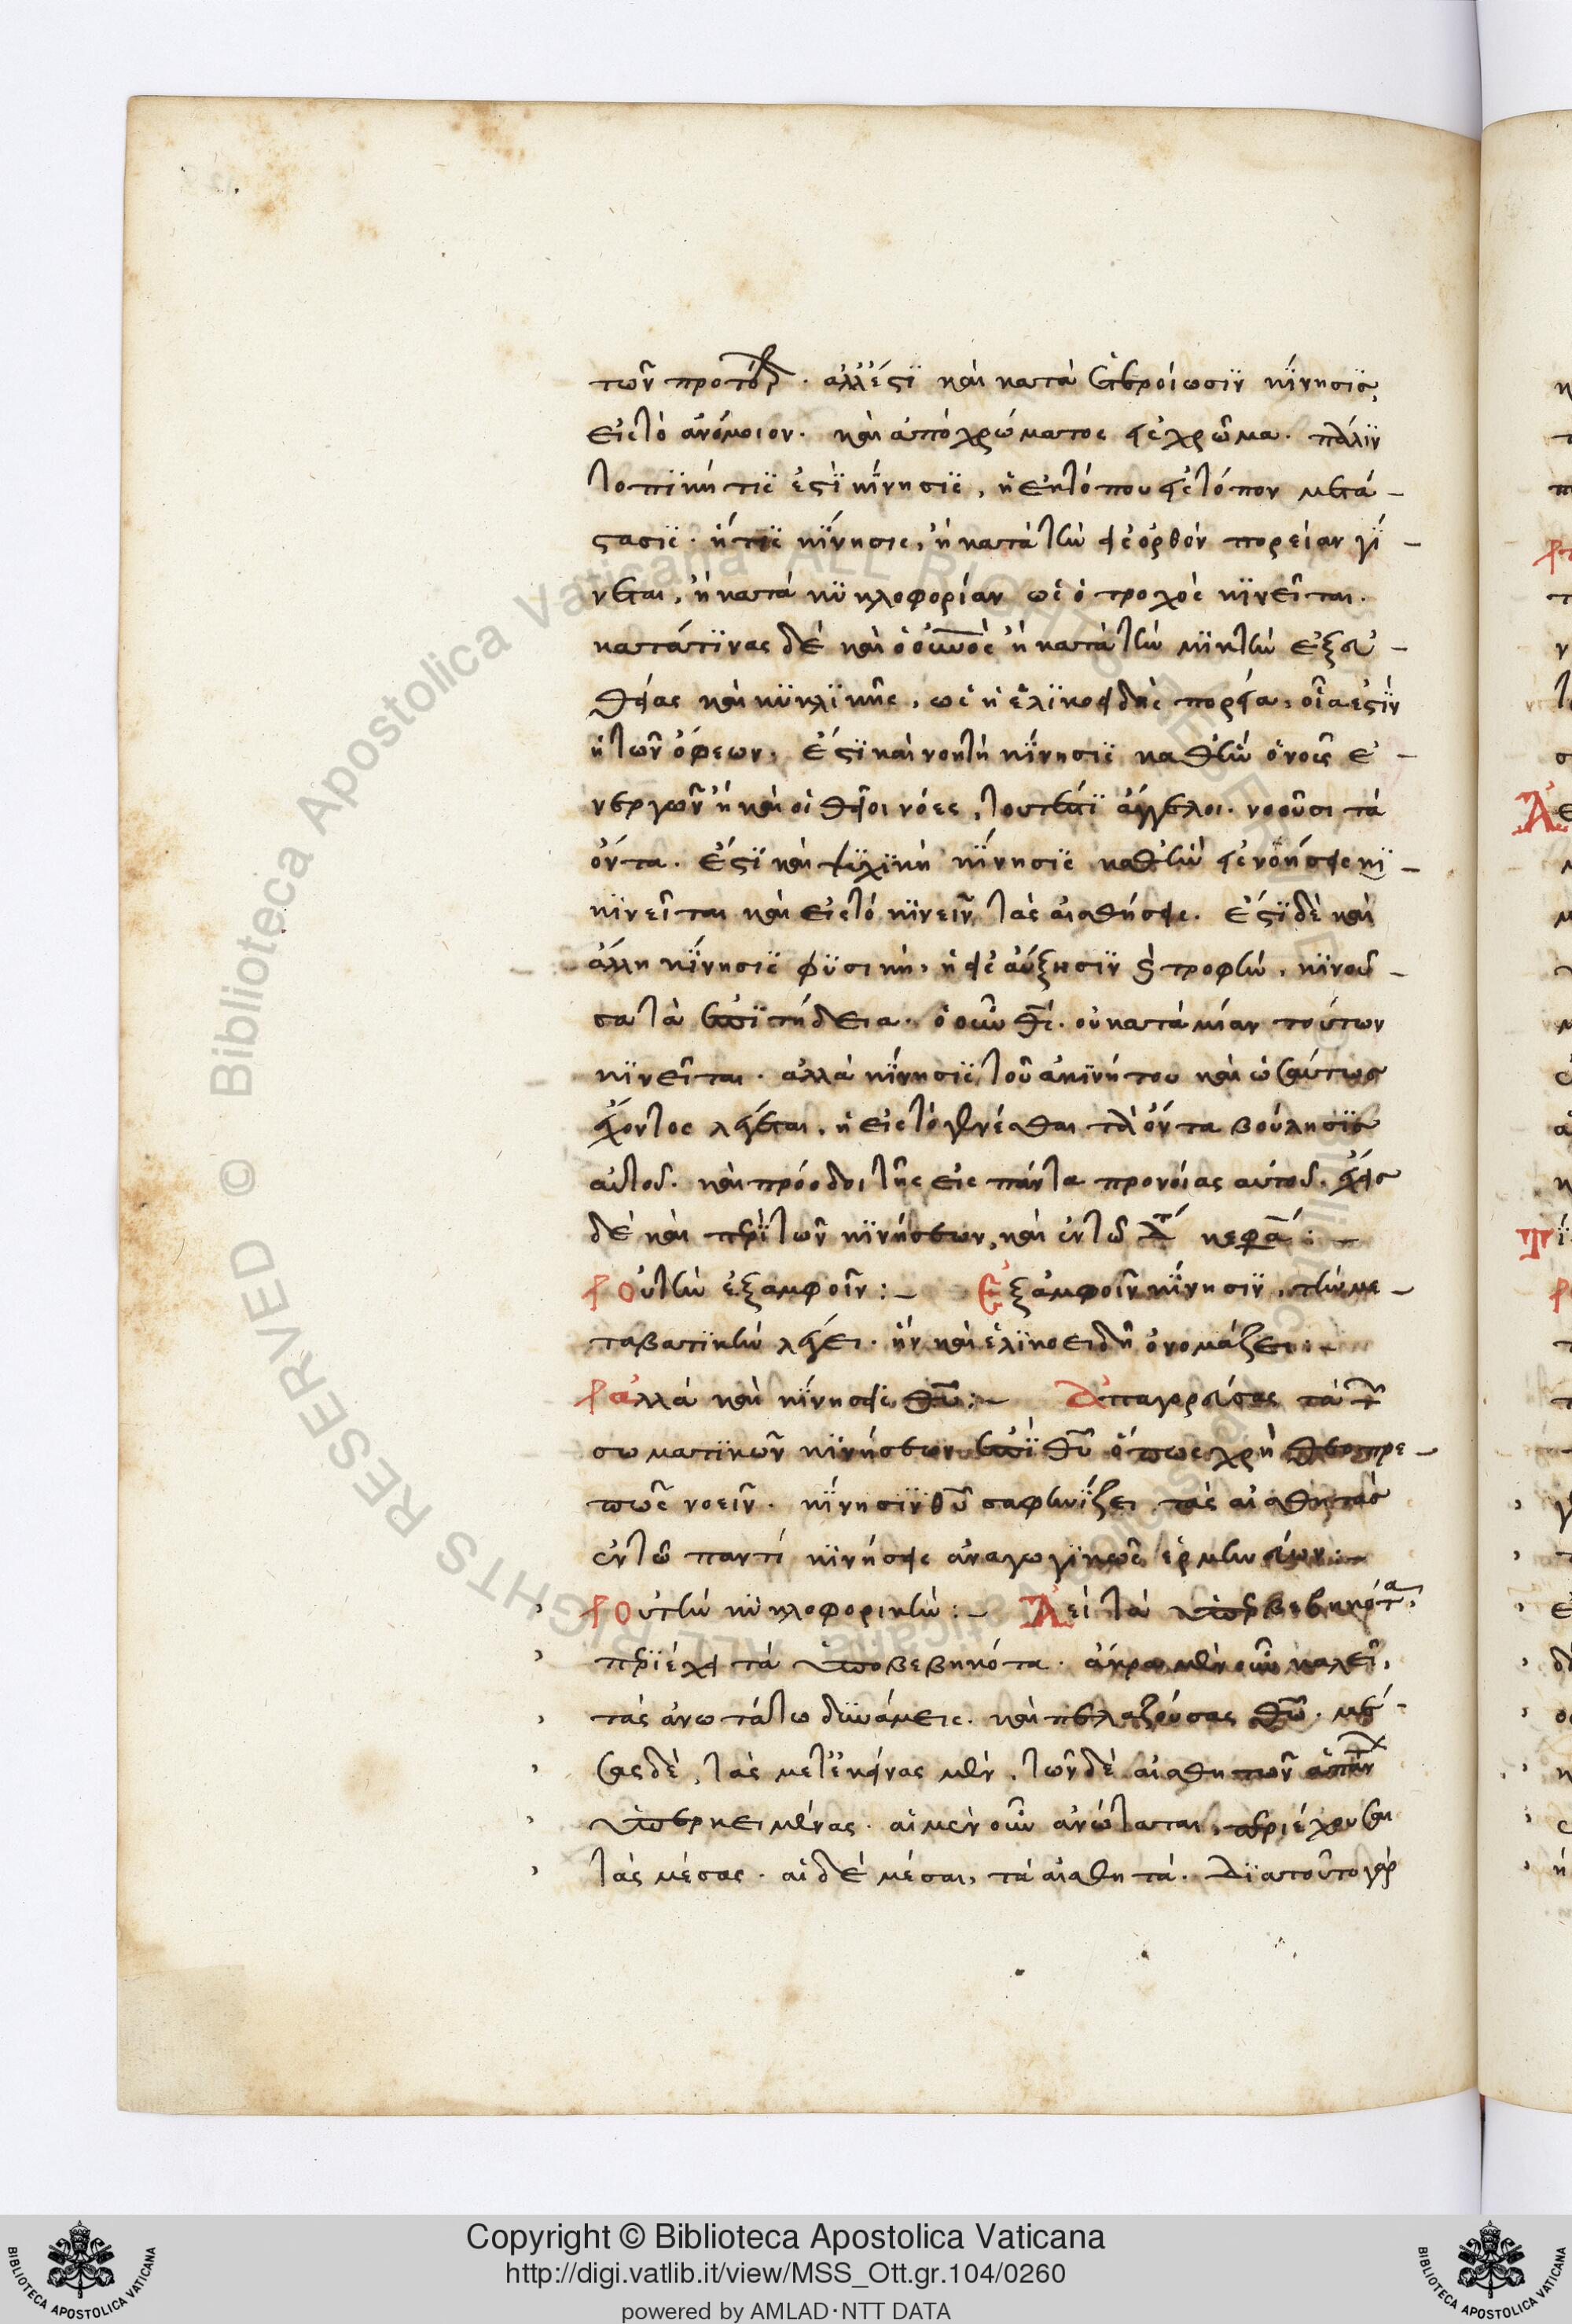 τῶν προτέρων. ἀλλ' ἔστι καὶ κατὰ ἑτεροίωσιν κίνησις,
εἰς τὸ ἀνόμοιον. καὶ ἀπὸ χρώματος εἰς χρῶμα. πάλιν
τοπικὴ τίς ἐστι κίνησις, ἡ ἐκ τόπου εἰς τόπον μετά-
στασις. ἥτις κίνησις, ἢ κατὰ τὴν εἰς ὀρθὸν πορείαν γί-
νεται, ἢ κατὰ κυκλοφορίαν ὡς ὁ τροχὸς κινεῖται.
κατά τινας δὲ καὶ ὁ οὐνος ἢ κατὰ τὴν μικτὴν ἐξ εὐ-
θείας καὶ κυκλικῆς, ὡς ἡ ἑλικοειδὴς πορεία, οἷα ἐστὶν
ἡ τῶν ὄφεων, ἔστι καὶ νοητὴ κίνησις καθ' ἣν ὁ νοῦς ἐ-
νεργῶν ἢ καὶ οἱ θεῖοι νόες, τουτέστι ἄγγελοι. νοοῦσι τὰ
ὄντα. ἔστι καὶ ψυχικὴ κίνησις καθ' ἣν εἰς νοήσεις κι-
κινεῖται καὶ εἰς τὸ κινεῖν τὰς αἰσθήσεις. ἔστι δὲ καὶ
ἄλλη κίνησις φυσικὴ, ἡ εἰς αὔξησιν καὶ τροφὴν, κινοῦ-
σα τὰ ἐπιτήδεια. ὁ οὖν θς. οὐ κατὰ μίαν τούτων
κινεῖται. ἀλλὰ κίνησις τοῦ ἀκινήτου καὶ ὡσαύτως
ἔχοντος λέγεται, ἡ εἰς τὸ γενέσθαι τὰ ὄντα βούλησις
αὐτοῦ. καὶ πρόοδοι τῆς εἰς πάντα προνοίας αὐτοῦ. ἔχεις
δὲ καὶ περὶ τῶν κινήσεων, καὶ ἐν τῶ δ κεφα :-
οὐ τὴν ἐξ ἀμφοῖν :- Ἐξ ἀμφοῖν κίνησιν, τὴν με-
ταβατικὴν λέγει. ἣν καὶ ἑλικοειδῆ ὀνομάζει :-
ἀλλὰ καὶ κινήσεις θυ :- Ἀπαγορεύσας τὰ τῶν
σωματικῶν κινήσεων ἐπὶ θυ ὅπως χρὴ θεοπρε-
πῶς νοεῖν. κίνησιν θυ σαφηνίζει τὰς αἰσθητὰς
ἐν τῶ παντὶ κινήσεις ἀναγωγικῶς ἑρμηνεύων :-
οὐ τὴν κυκλοφορικὴν :- Ἀεὶ τὰ ὑπερβεβηκότα,
περιέχει τὰ ὑποβεβηκότα. ἄκρα μὲν οὖν καλεῖ,
τὰς ἀνωτάτω δυνάμεις. καὶ πελαζούσας θῶ. μέ-
σας δὲ, τὰς μετ' ἐκείνας μὲν, τῶν δὲ αἰσθητῶν ἁπάντων
ὑπερκειμένας. αἱ μὲν οὖν ἀνώταται, περιέχουσαι
τὰς μέσας. αἱ δὲ μέσαι, τὰ αἰσθητά. διὰ τοῦτο γὰρ
Copyright © Biblioteca Apostolica Vaticana
http://digi.vatlib.it/view/MSS_Ott.gr.104/0260
powered by AMLAD·NTT DATA